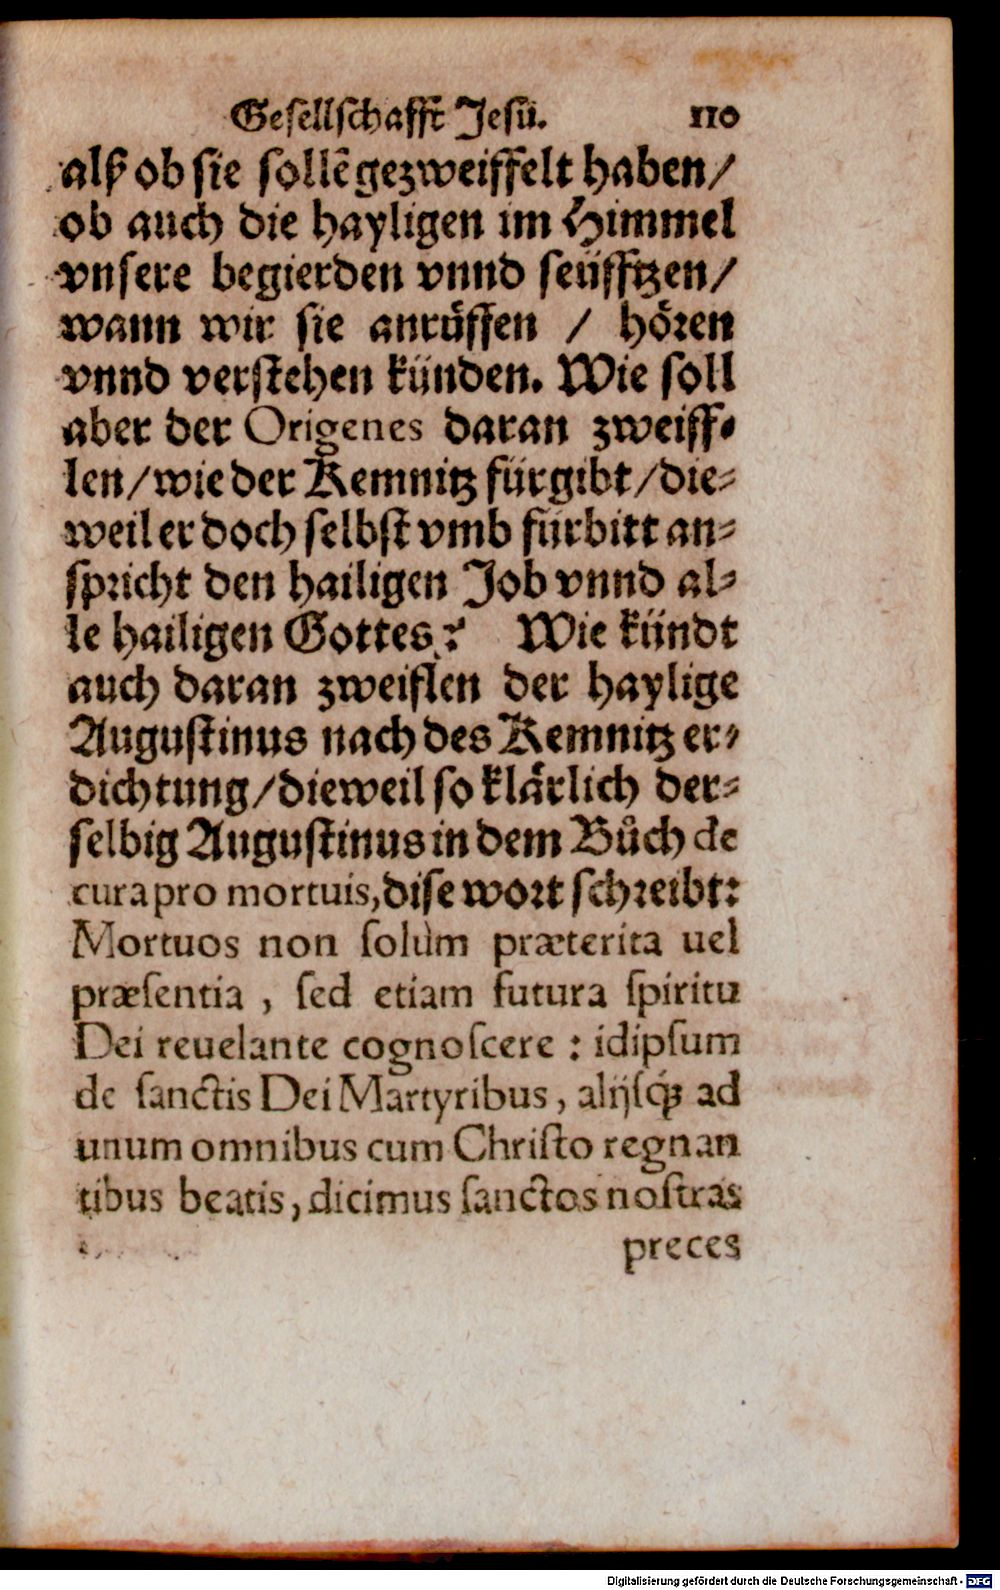 Gesellschafft Jesu. 110
alß ob sie sollē gezweiffelt haben/
ob auch die hayligen im Himmel
vnsere begierden vnnd seüfftzen/
wann wir sie anrüffen / hören
vnnd verstehen künden. Wie soll
aber der Origenes daran zweiff-
len/wie der Kemnitz fürgibt/die-
weil er doch selbst vmb fürbitt an-
spricht den hailigen Job vnnd al-
le hailigen Gottes? Wie kündt
auch daran zweiflen der haylige
Augustinus nach des Kemnitz er-
dichtung/dieweil so klärlich der-
selbig Augustinus in dem Bůch de
cura pro mortuis, dise wort schreibt:
Mortuos non solùm præterita uel
præsentia , sed etiam futura spiritu
Dei reuelante cognoscere : idipsum
de sanctis Dei Martyribus, alijsq́ꝫ ad
unum omnibus cum Christo regnan
tibus beatis, dicimus sanctos nostras
preces
Digitalisierung gefördert durch die Deutsche Forschungsgemeinschaft - DFG